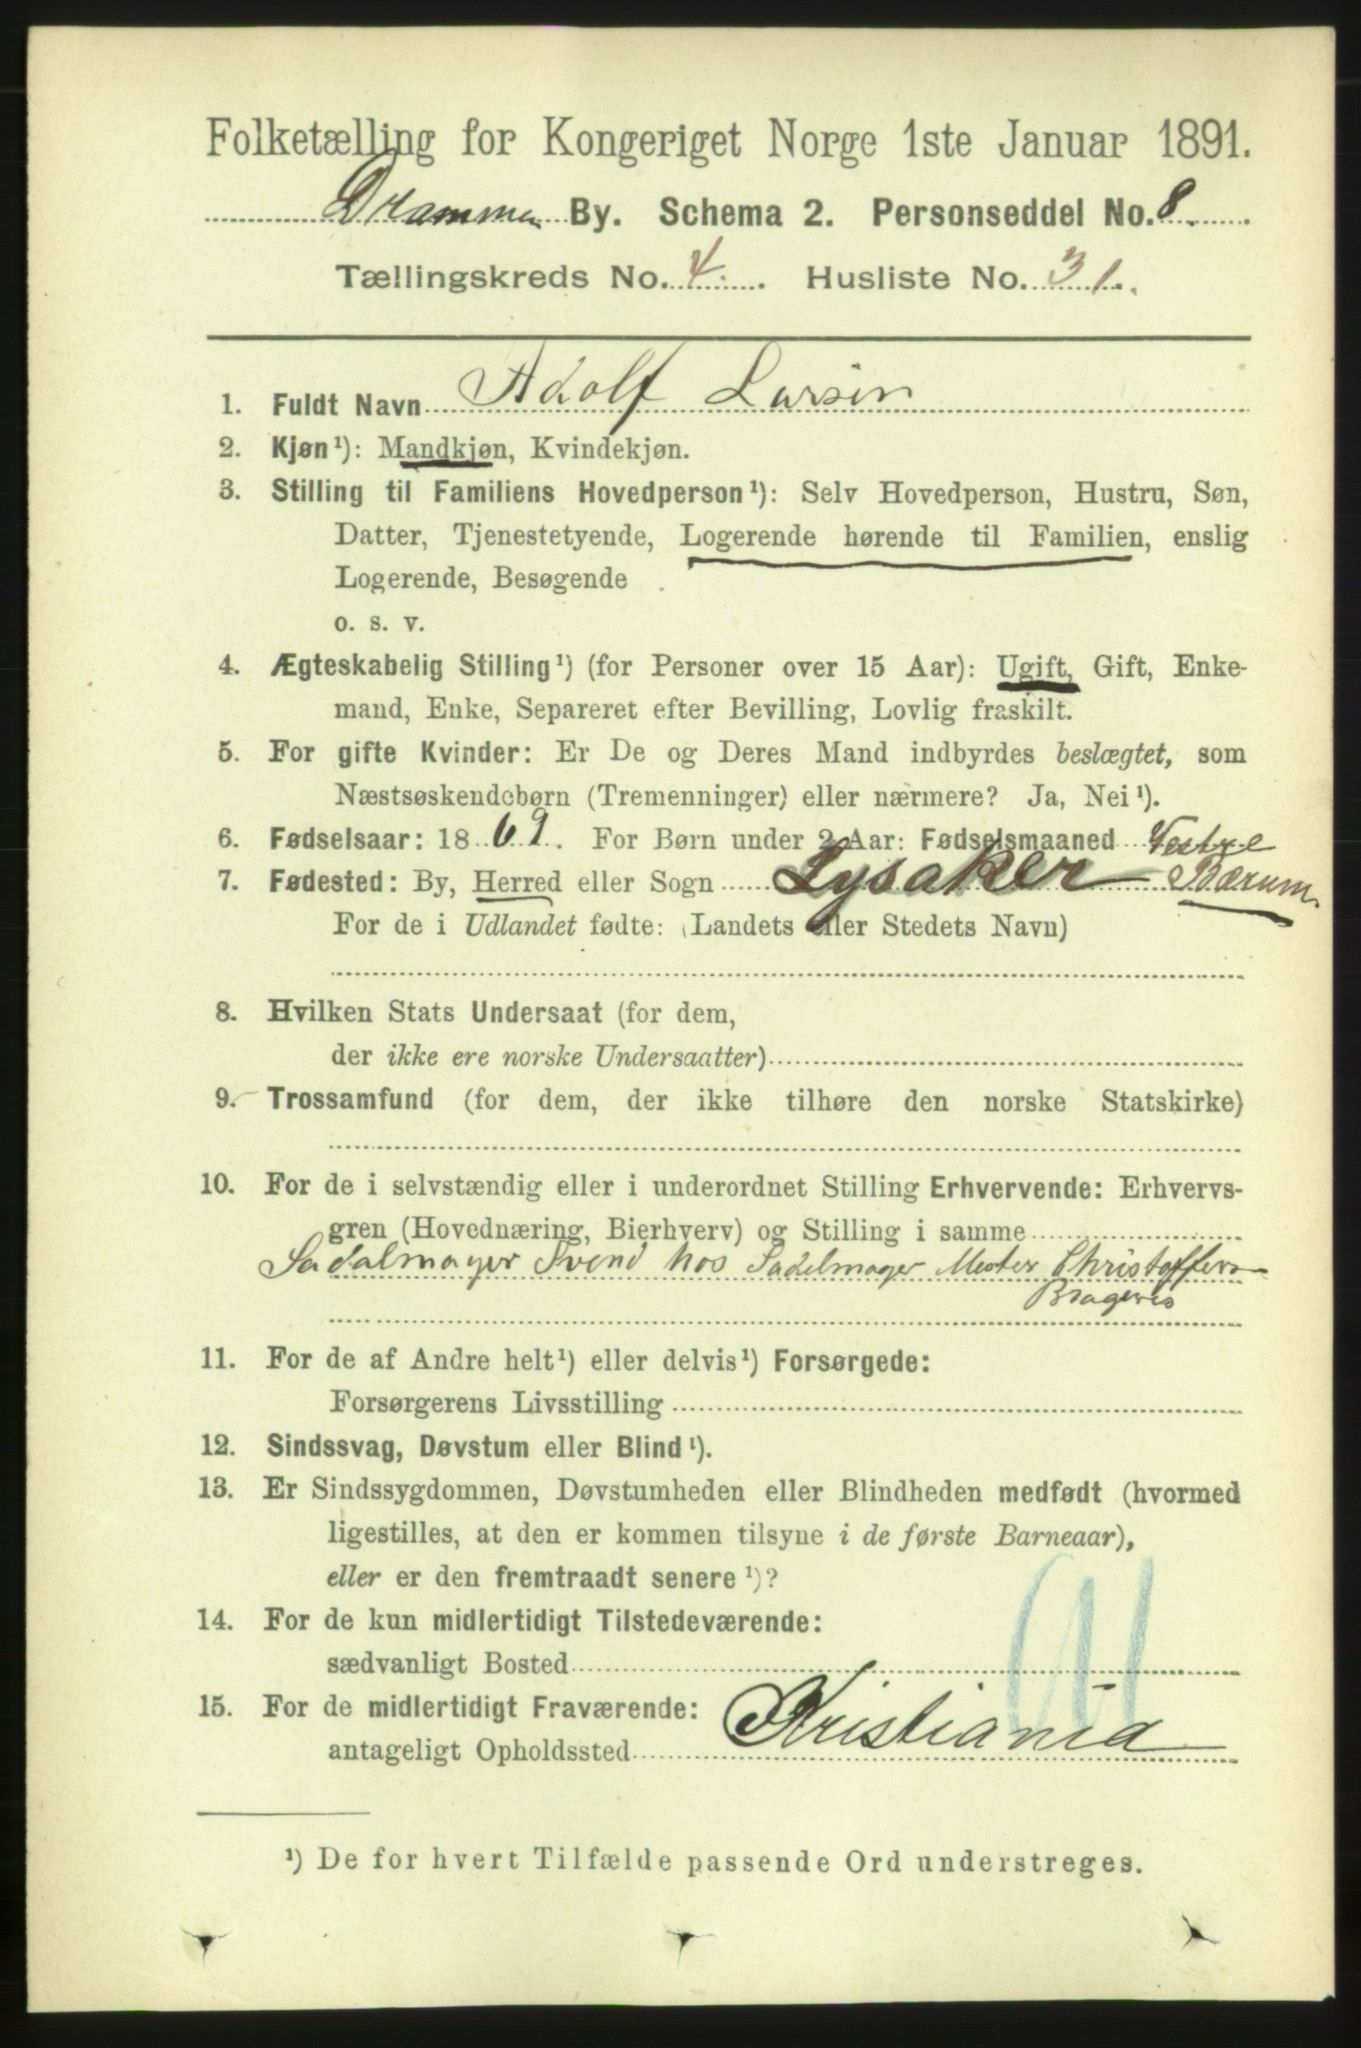 Folketælling for Kongeriget Norge 1ste Januar 1891.
Drammen By. Schema 2. Personseddel No. 8.
Tællingskreds No. 4. Husliste No. 31.
1. Fuldt Navn Adolf Larsen
2. Kjøn¹): Mandkjøn, Kvindekjøn.
3. Stilling til Familiens Hovedperson¹): Selv Hovedperson, Hustru, Søn,
Datter, Tjenestetyende, Logerende hørende til Familien, enslig
Logerende, Besøgende
o. s. v.
4. Ægteskabelig Stilling¹) (for Personer over 15 Aar): Ugift, Gift, Enke-
mand, Enke, Separeret efter Bevilling, Lovlig fraskilt.
5. For gifte Kvinder: Er De og Deres Mand indbyrdes beslægtet, som
Næstsøskendebørn (Tremenninger) eller nærmere? Ja, Nei¹).
6. Fødselsaar: 1869. For Børn under 2 Aar: Fødselsmaaned
Vestre
7. Fødested: By, Herred eller Sogn Lysaker Bærum
For de i Udlandet fødte: (Landets eller Stedets Navn)
8. Hvilken Stats Undersaat (for dem,
der ikke ere norske Undersaatter)
9. Trossamfund (for dem, der ikke tilhøre den norske Statskirke)
10. For de i selvstændig eller i underordnet Stilling Erhvervende: Erhvervs-
gren (Hovednæring, Bierhverv) og Stilling i samme
Sadalmager Svend hos Sadelmager Mester Christoffersen
Bragernes
11. For de af Andre helt¹) eller delvis¹) Forsørgede:
Forsørgerens Livsstilling
12. Sindssvag, Døvstum eller Blind¹).
13. Er Sindssygdommen, Døvstumheden eller Blindheden medfødt (hvormed
ligestilles, at den er kommen tilsyne i de første Barneaar),
eller er den fremtraadt senere¹)?
14. For de kun midlertidigt Tilstedeværende:
sædvanligt Bosted
15. For de midlertidigt Fraværende:
antageligt Opholdssted Kristiania
¹) De for hvert Tilfælde passende Ord understreges.